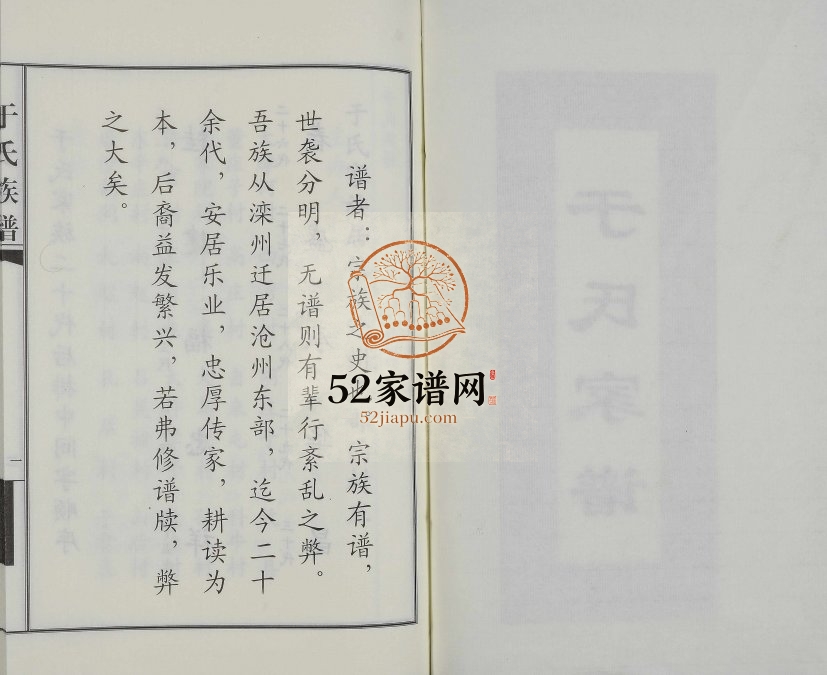 谱者：宗族之史也 宗族有谱，
世袭分明，无谱则有辈行紊乱之弊。
吾族从滦州迁居沧州东部，迄今二十
余代，安居乐业，忠厚传家，耕读为
本，后裔益发繁兴，若弗修谱牍，弊
之大矣。
于氏族谱
一
52家谱网
52jiapu.com
于氏家谱